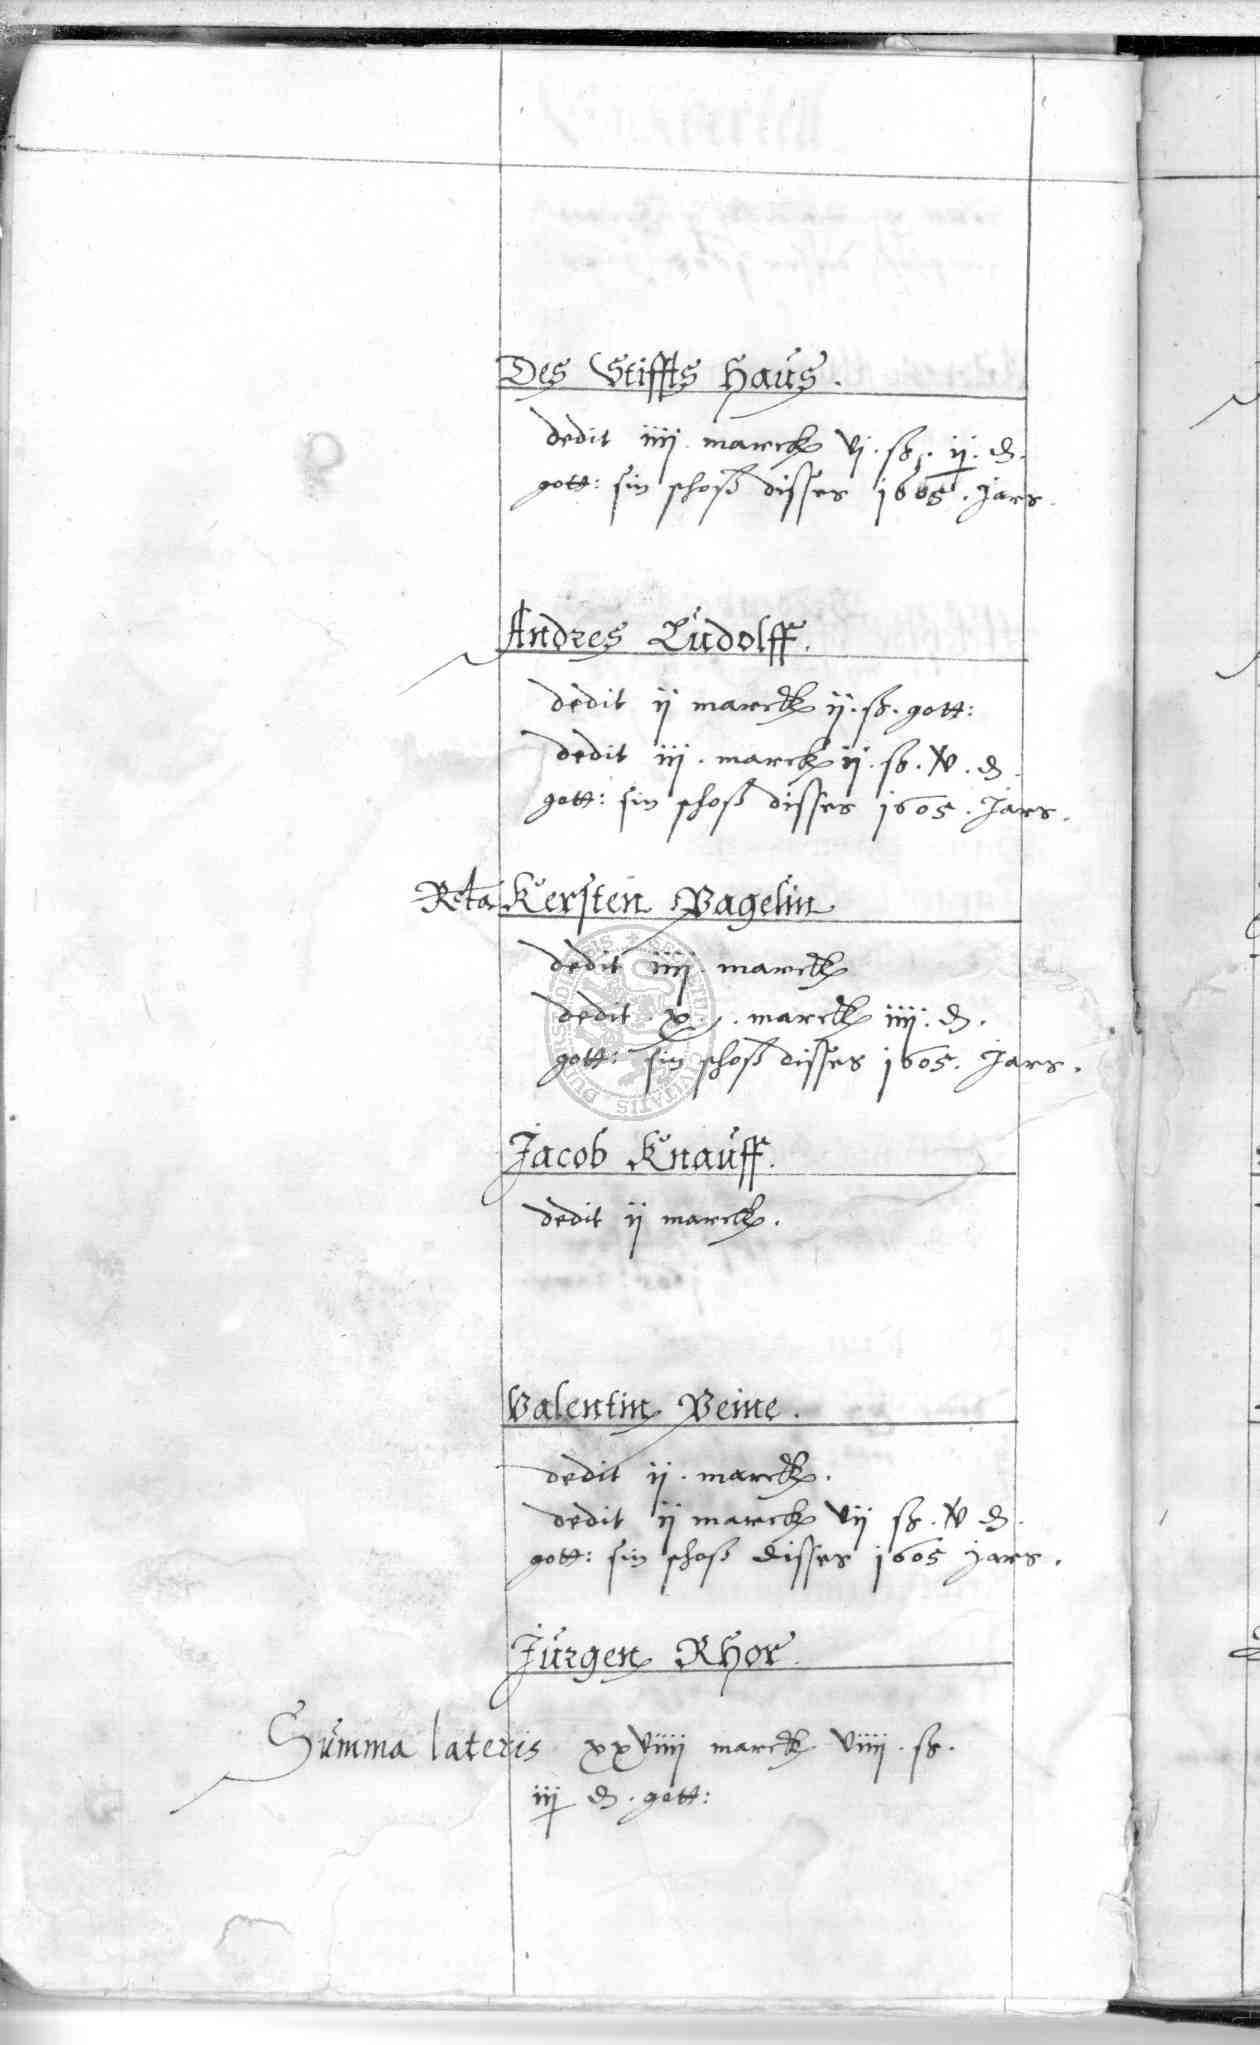 Des Stiffts Haus.
dedit iiij. marck vj. ß. ij. d.
gott: sin schoß disses 1605. Jars.
Andres Ludolff.
dedit ij marck ij. ß. gott:
dedit iij. marck ij. ß. v. d.
gott: sin schoß disses 1605. Jars.
Kersten Vagelin
dedit iiij. marck
dedit marck iiij. d.
gott: sin schoß disses 1605. Jars.
Jacob Knauff.
dedit ij marck.
Valentin Peine.
dedit ij. marck.
dedit ij marck vij ß. v d.
gott: sin schoß disses 1605 jars.
Jürgen Rhor.
Summa lateris xxviiij marck viiij. ß.
iij d. gott: